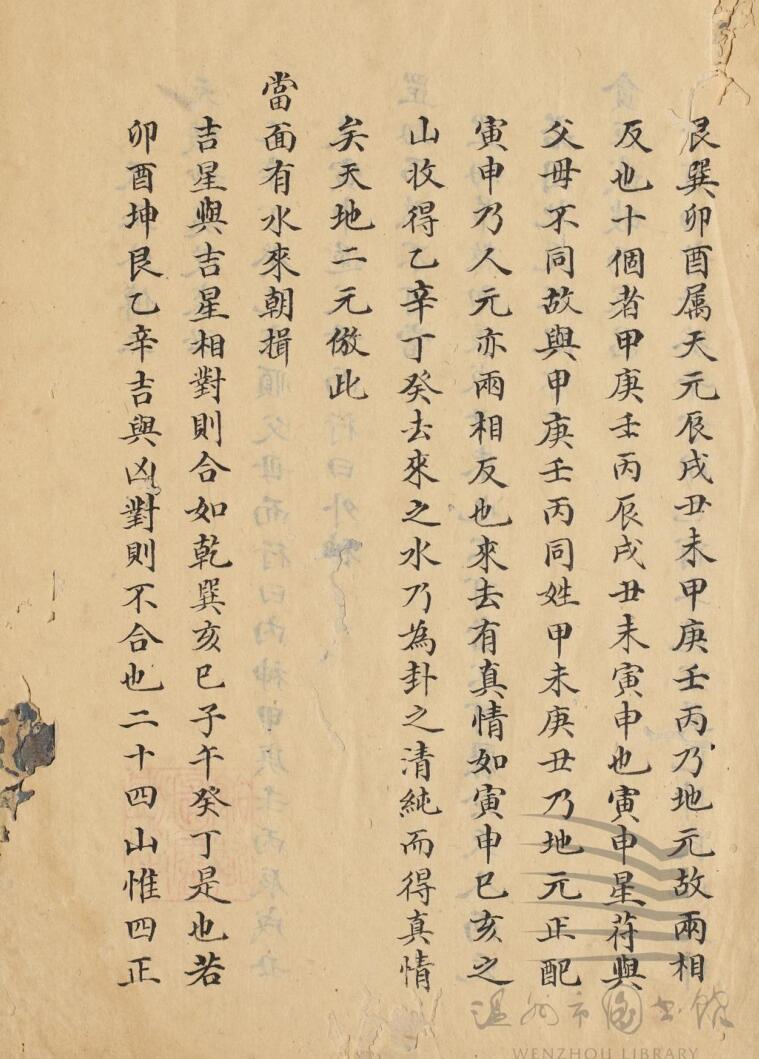 艮巽卯酉属天元辰戌丑未甲庚壬丙乃地元故兩相
反也十個者甲庚壬丙辰戌丑未寅申也寅申星苻與
父母不同故與甲庚壬丙同姓甲未庚丑乃地元正配
寅申乃人元亦兩相反也來去有真情如寅申巳亥之
山收得乙辛丁癸去來之水乃為卦之清純而得真情
矣天地二元倣此
當面有水來朝揖
吉星與吉星相對則合如乾巽亥巳子午癸丁是也若
卯酉坤艮乙辛吉與凶對則不合也二十四山惟四正
温州市图书馆
WENZHOU LIBRARY